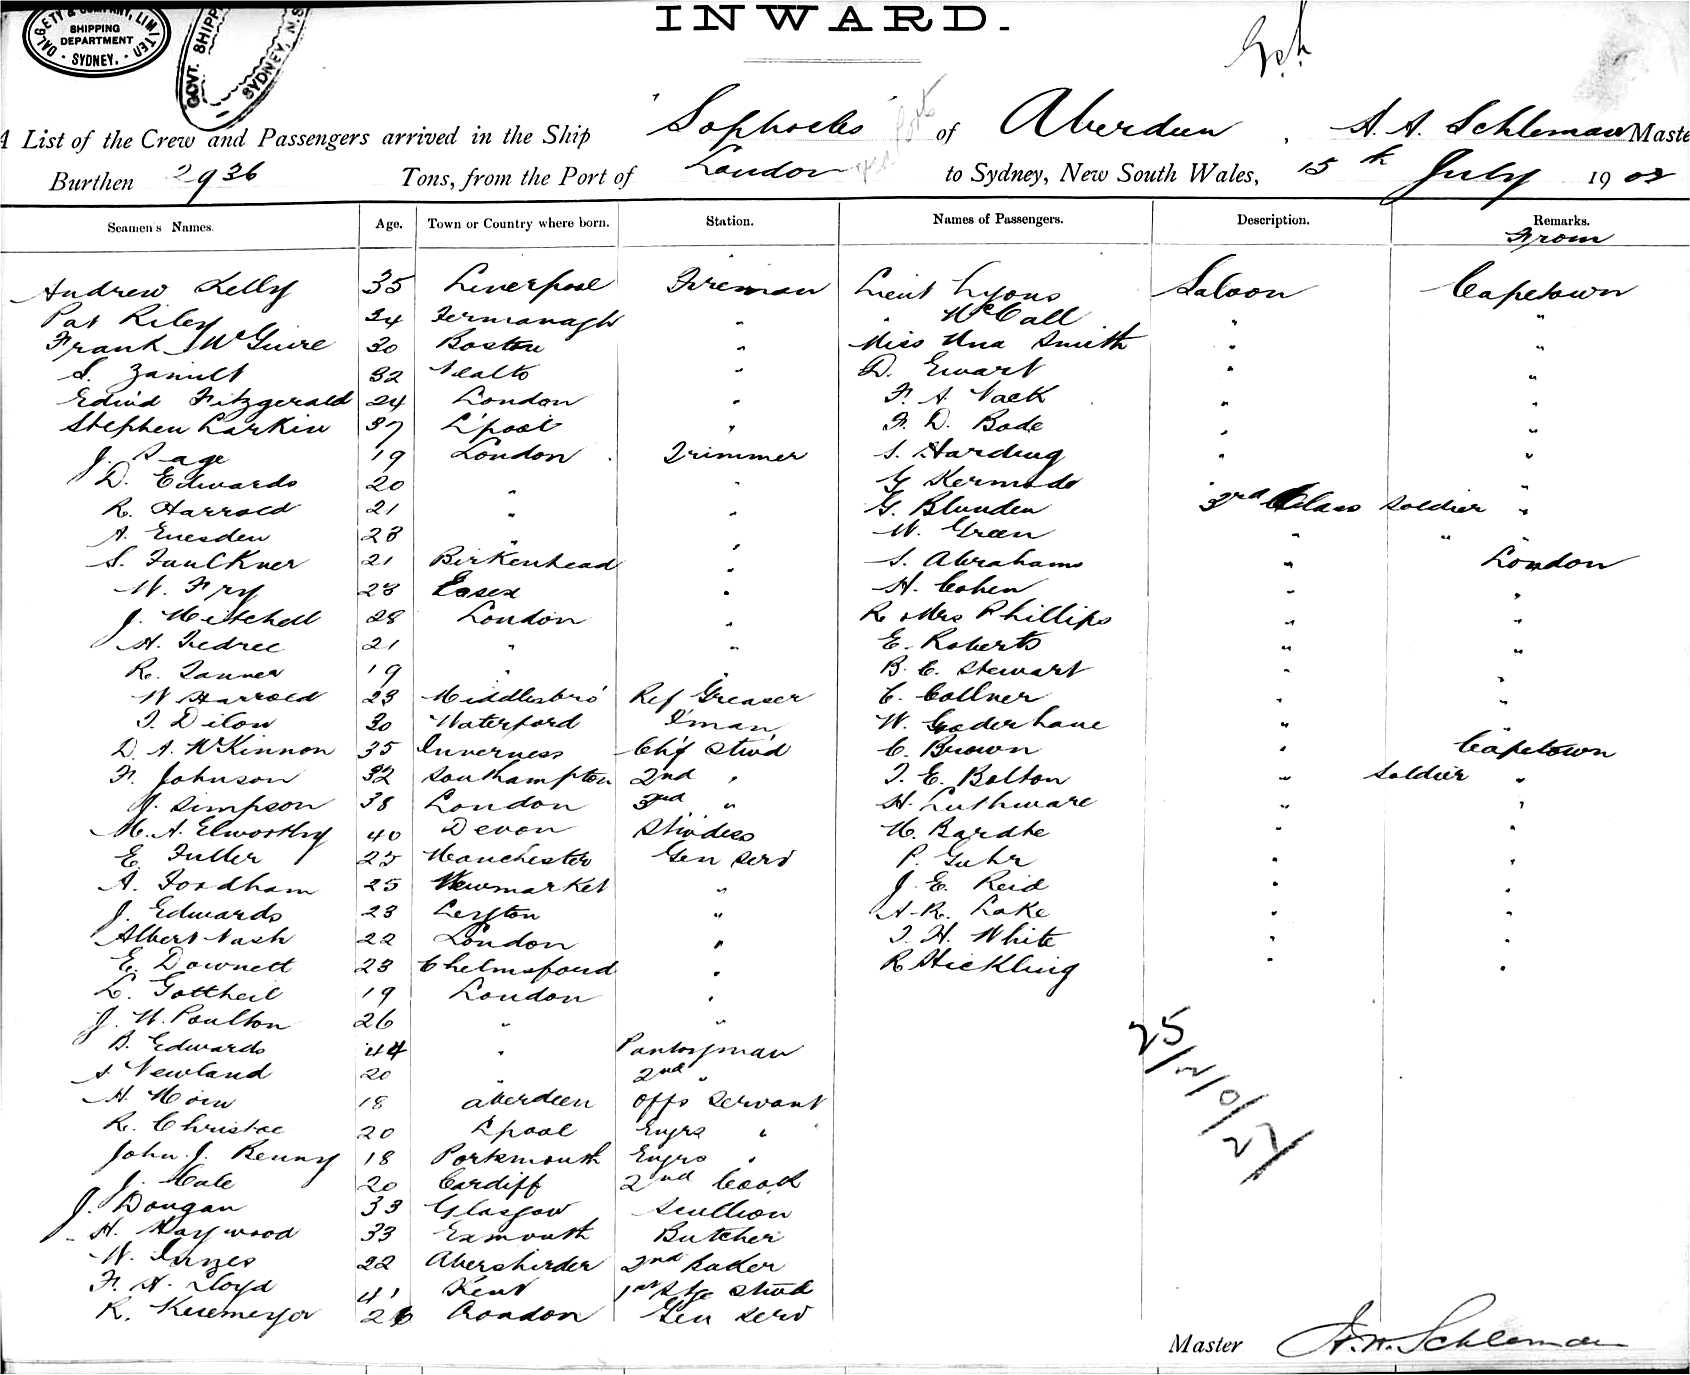 DALGETY & COMPANY, LIMITED
SHIPPING
DEPARTMENT
SYDNEY.
GOVT. SHIPP
SYDNEY, N.S.
INWARD.
A List of the Crew and Passengers arrived in the Ship "Sophocles" of Aberdeen, A. A. Schleman Maste
Burthen 2936 Tons, from the Port of London to Sydney, New South Wales, 15th July 1902
Seamen's Names. Age. Town or Country where born. Station. Names of Passengers. Description. Remarks.
From
Andrew Kelly 35 Liverpool Fireman Lieut Lyons Saloon Capetown
Pat Riley 24 Fermanagh " " McCall " "
Frank McGuire 30 Boston " Miss Una Smith " "
S. Zamult 32 Malta " D. Ewart " "
Edwd Fitzgerald 24 London " F. A. Nack " "
Stephen Larkin 37 L'pool " F. D. Bode " "
J. Sage 19 London Trimmer S. Harding " "
D. Edwards 20 " " G. Kermode " "
R. Harrold 21 " " G. Blunden 3rd Class Soldier "
A. Euesden 28 " " W. Green " " "
S. Faulkner 21 Birkenhead " S. Abrahams " London
W. Fry 23 Essex " H. Cohen " "
J. Mitchell 28 London " R Mrs Phillips " "
H. Tedree 21 " " E. Roberts " "
R. Tanner 19 " " B. C. Stewart " "
W Harrold 23 Middlesbro' Ref Greaser C. Collner " "
T. Dilon 30 Waterford F'man W. Goderhane " "
D. A. McKinnon 35 Inverness Chf Stwd C. Brown " Capetown
F. Johnson 32 Southampton 2nd " T. E. Bolton " Soldier "
J. Simpson 38 London 3rd " H. Luthware " "
M. A. Elworthy 40 Devon Stwdess M. Bardte " "
E. Fuller 25 Manchester Gen Serv P. Guhr " "
A. Fordham 25 Newmarket " J. E. Reid " "
J. Edwards 23 Leyton " A. R. Lake " "
Albert Nash 22 London " T. H. White " "
E. Downett 23 Chelmsford " R Hickling " "
L. Gottheil 19 London "
J. W. Poulton 26 " "
B. Edwards 44 " Pantryman
A Newland 20 " 2nd "
H. Moir 18 Aberdeen Offs Servant
R. Christie 20 L'pool Engrs "
John J. Benny 18 Portsmouth Engrs "
J. Cale 20 Cardiff 2nd Cook
J. Dougan 33 Glasgow Scullion
H. Haywood 33 Exmouth Butcher
W. Innes 22 Aberchirder 2nd Baker
F. H. Lloyd 41 Kent 1st Stge Stwd
R. Kusemeyer 26 London Gen Serv
Master A. A. Schleman